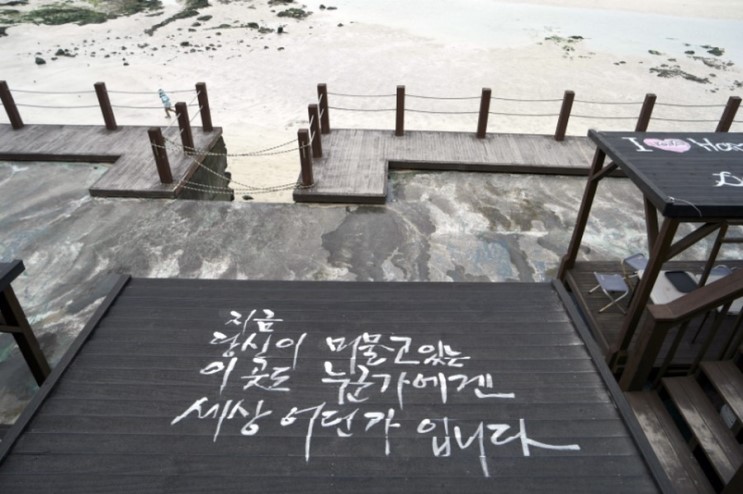 지금
당신이 머물고 있는
이 곳도 누군가에겐
세상 어딘가 입니다
I